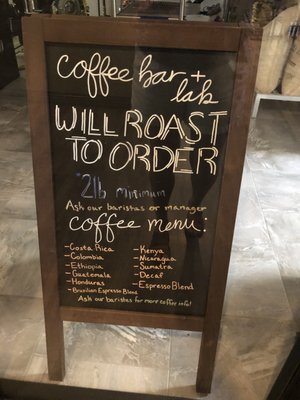 Coffee bar +
lab
WILL ROAST
TO ORDER
*2lb minimum
Ask our baristas or manager
Coffee Menu:
-Costa Rica
-Colombia
-Ethiopia
-Guatemala
-Honduras
-Brazilian Espresso Blend
-Kenya
-Nicaragua
-Sumatra
-Decaf
-Espresso Blend
Ask our baristas for more info!